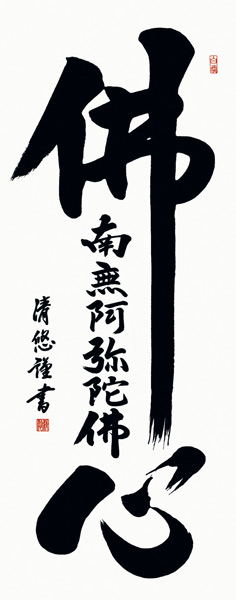 佛心
南無阿弥陀佛
清悠謹書